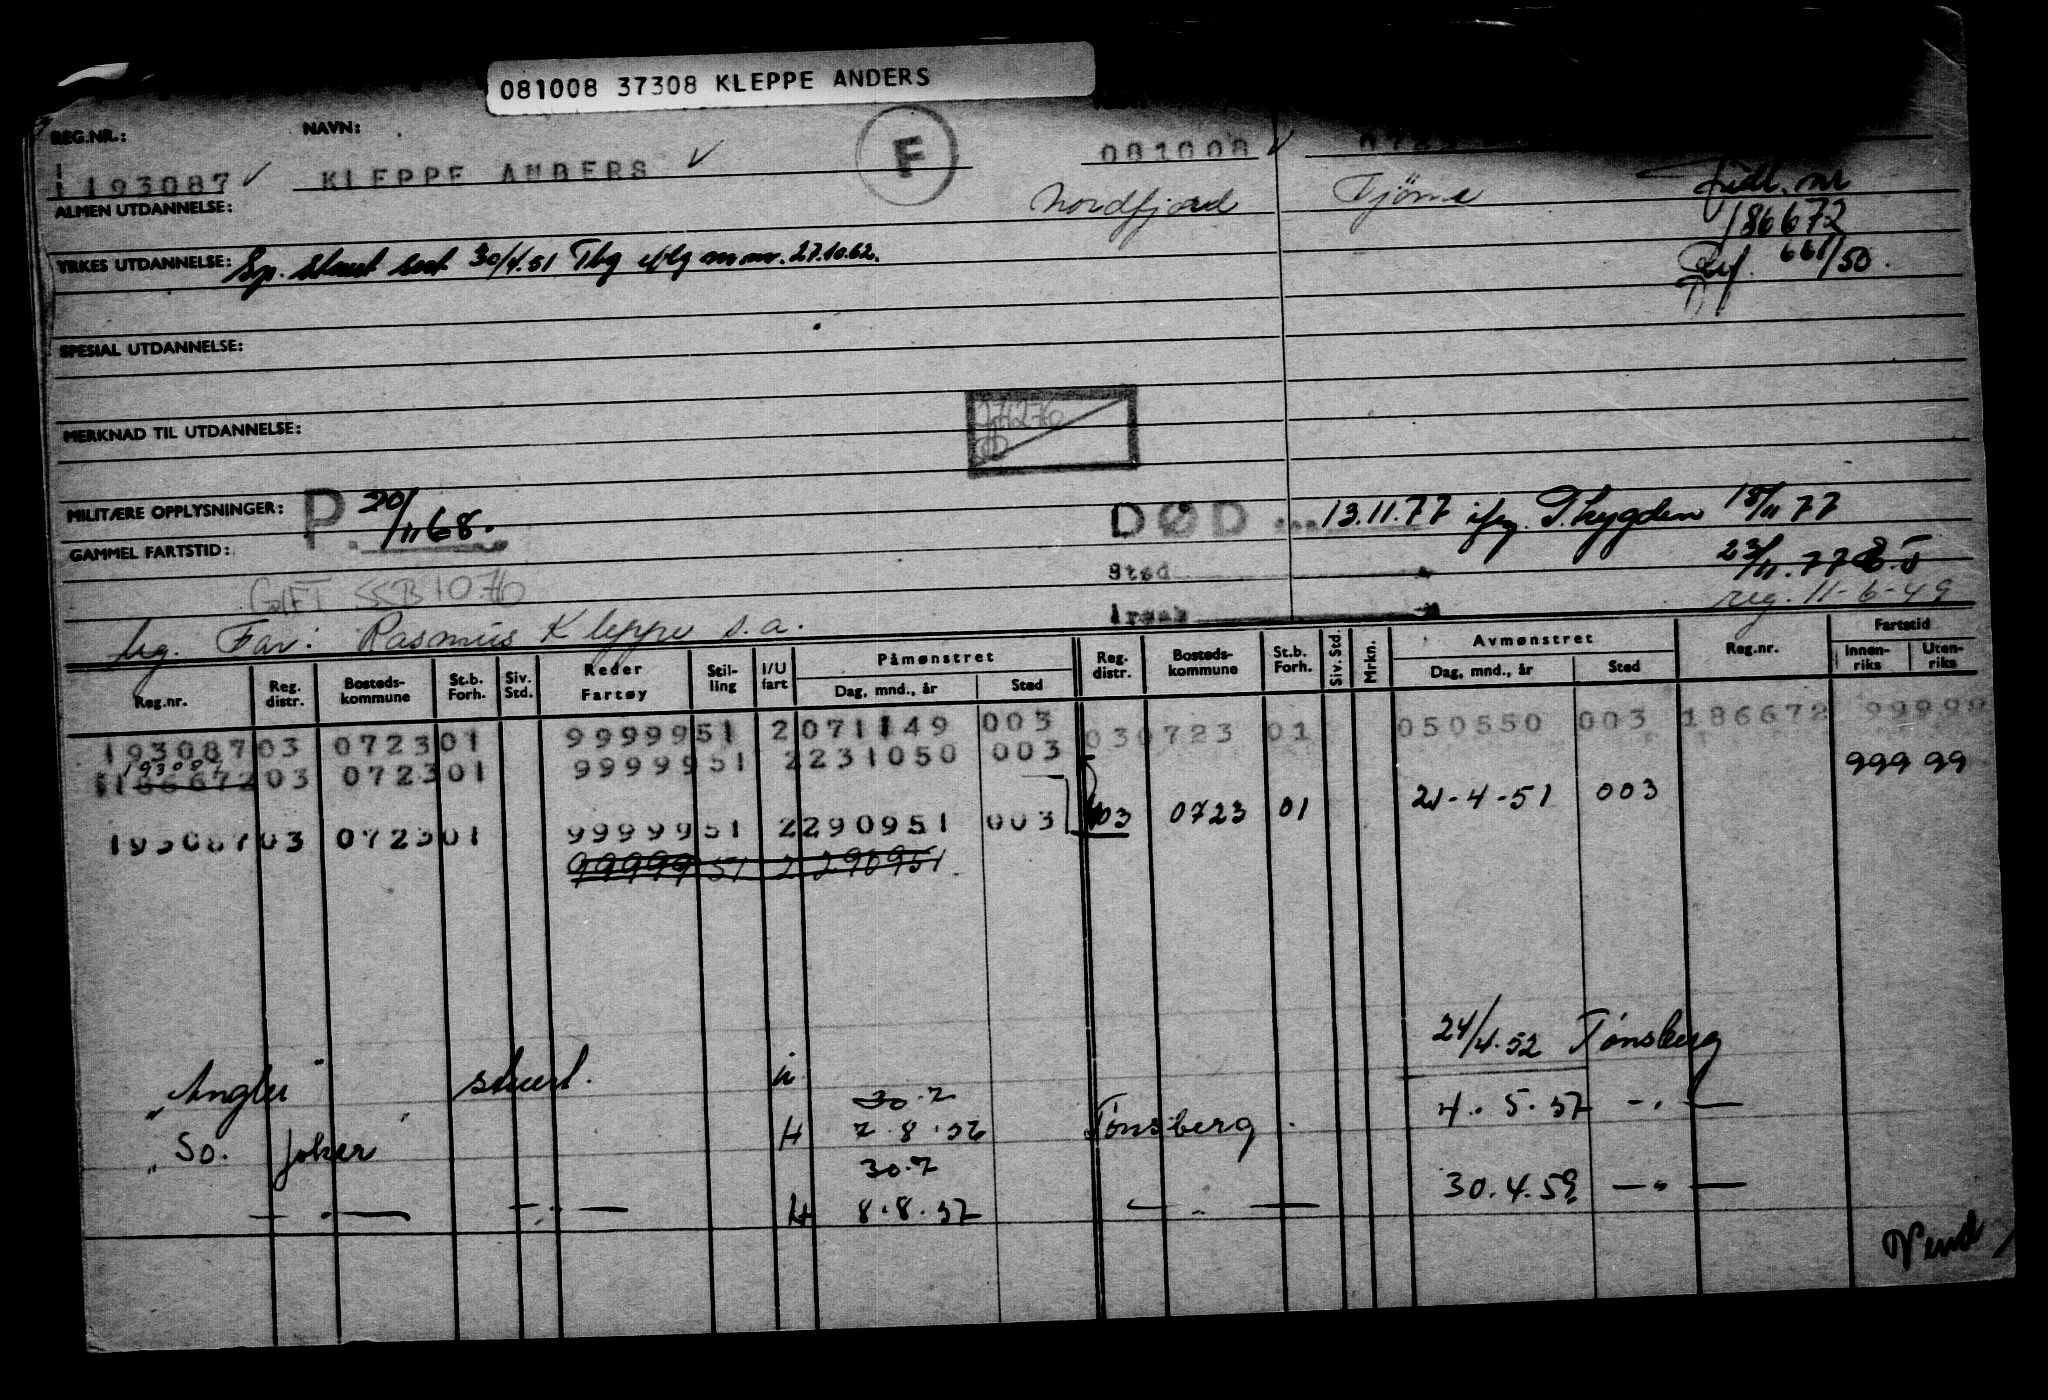 081008 37308 KLEPPE ANDERS
REG.NR.: NAVN:
193087 KLEPPE ANDERS F 081008
ALMEN UTDANNELSE: Nordfjord Tjøme tidl. nr
186672
YRKES UTDANNELSE: 30/4.51 Tbg 27.10.62. 661/50.
SPESIAL UTDANNELSE:
MERKNAD TIL UTDANNELSE:
MILITÆRE OPPLYSNINGER: P. 20/11 68. DØD 13.11.77 ifg. T.trygden 15/11 77
GAMMEL FARTSTID: Sted 23/11.77
GIFT SSB 1076 Årsak reg. 11-6-49
Far: Rasmus Kleppe s.a.
Reg.nr. Reg. distr. Bosteds-kommune St.b. Forh. Siv. Std. Reder Fartøy Stil-ling I/U fart Påmønstret Dag, mnd., år Sted Reg. distr. Bosteds-kommune St.b. Forh. Siv. Std. Mrkn. Avmønstret Dag, mnd., år Sted Reg.nr. Fartstid Innen-riks Uten-riks
193087 03 0723 01 99999 51 2 071149 003 03 0723 01 050550 003 186672 99999
193087
186672 03 0723 01 99999 51 2 231050 003 03 0723 01 21-4-51 003 999 99
193087 03 0723 01 99999 51 2 290951 003
99999 51 2 290951
24/4.52 Tønsberg
30.7
H 2.8.52 Tønsberg. 4.5.52 -"-
"So. Joker
30.7
-"- -"- H 8.8.52 -"- 30.4.59 -"-
Vend